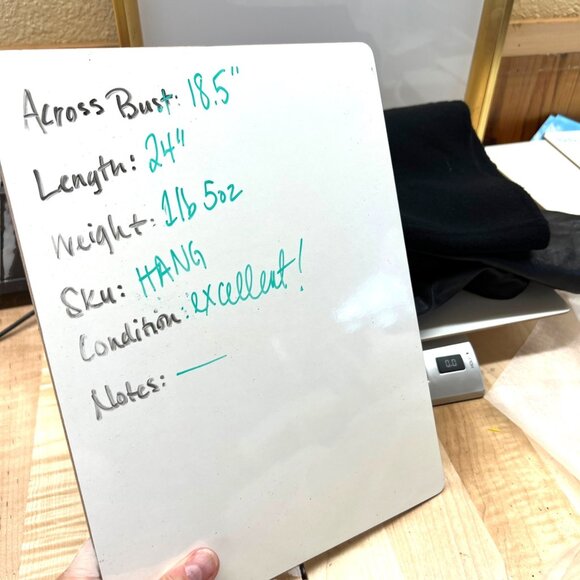 Across Bust: 18.5"
Length: 24"
Weight: 1lb 5oz
Sku: HANG
Condition: excellent!
Notes: —
0.0